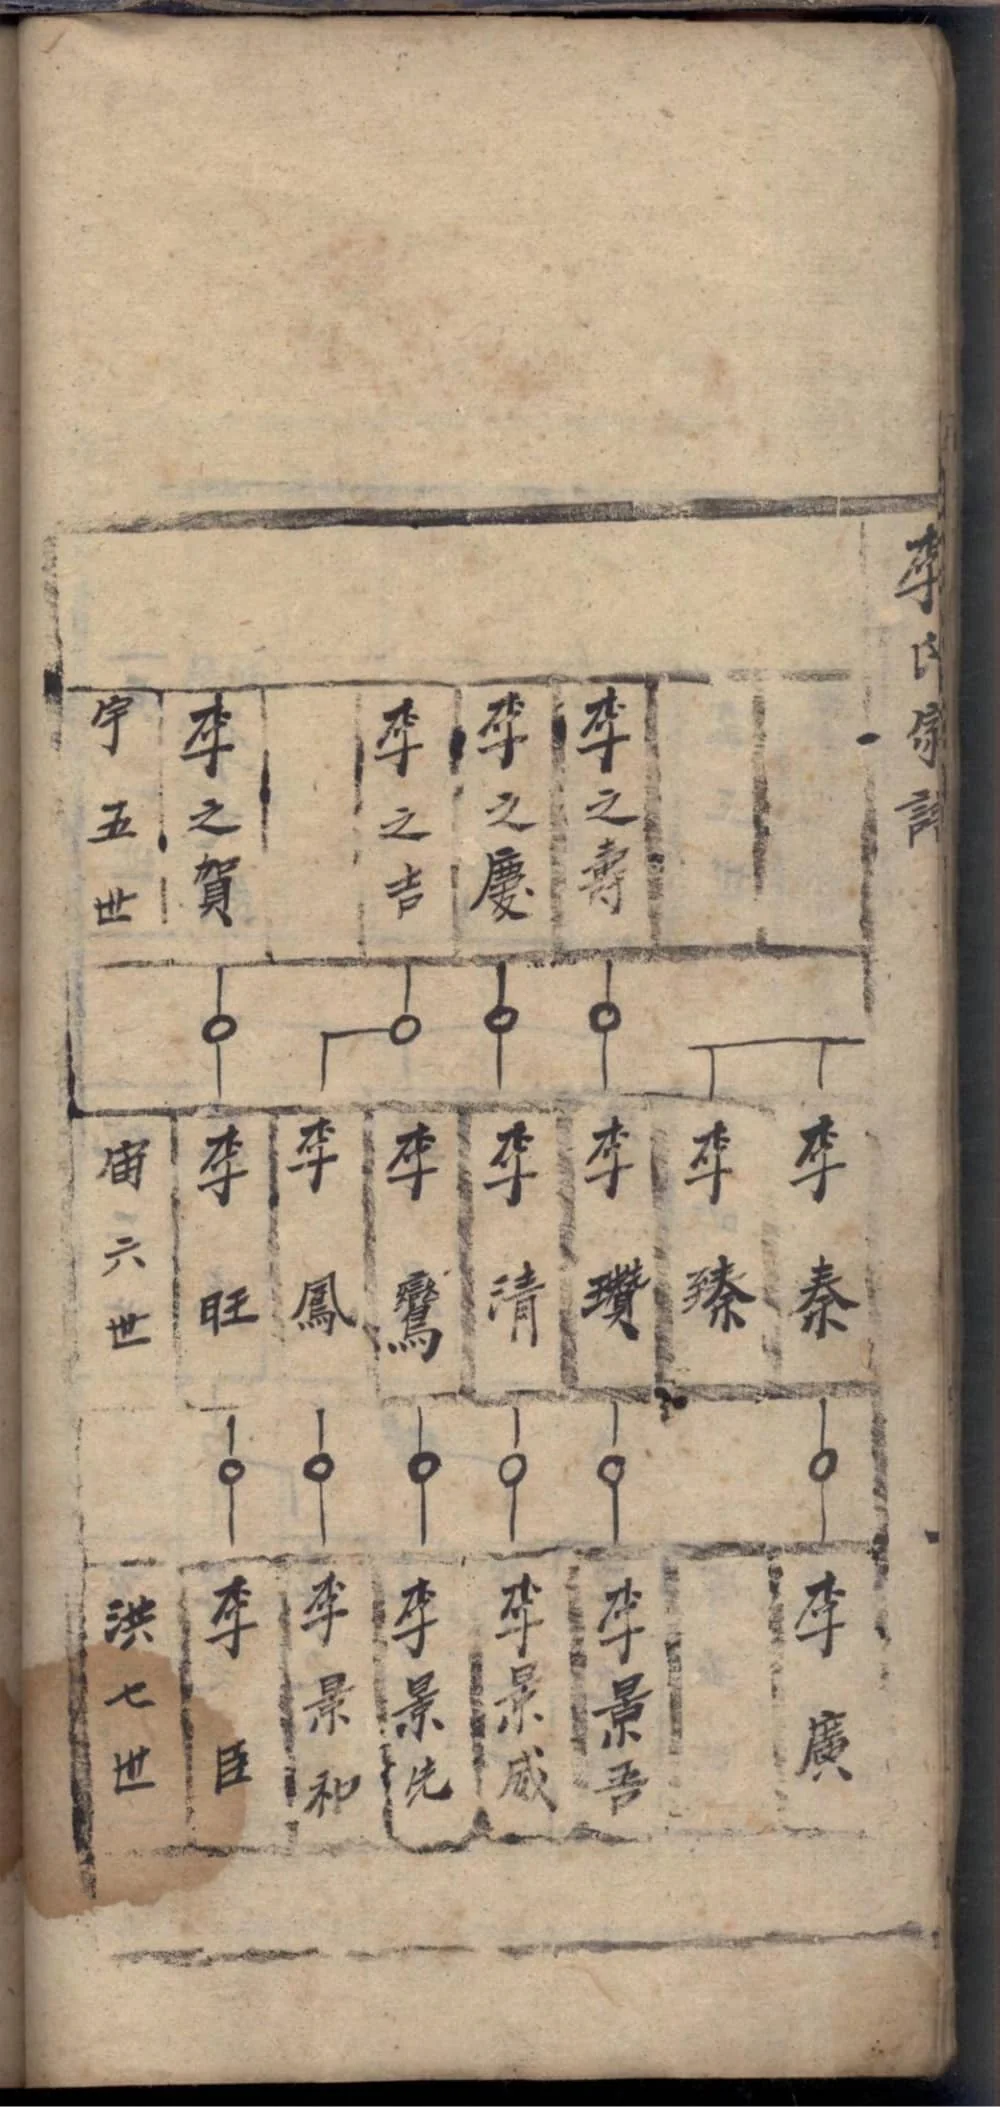 李氏宗譜
李之壽
李之慶
李之吉
李之賀
宇五世
李秦
李臻
李瓚
李清
李鸞
李鳳
李旺
宙六世
李廣
李景吾
李景威
李景先
李景和
李臣
洪七世